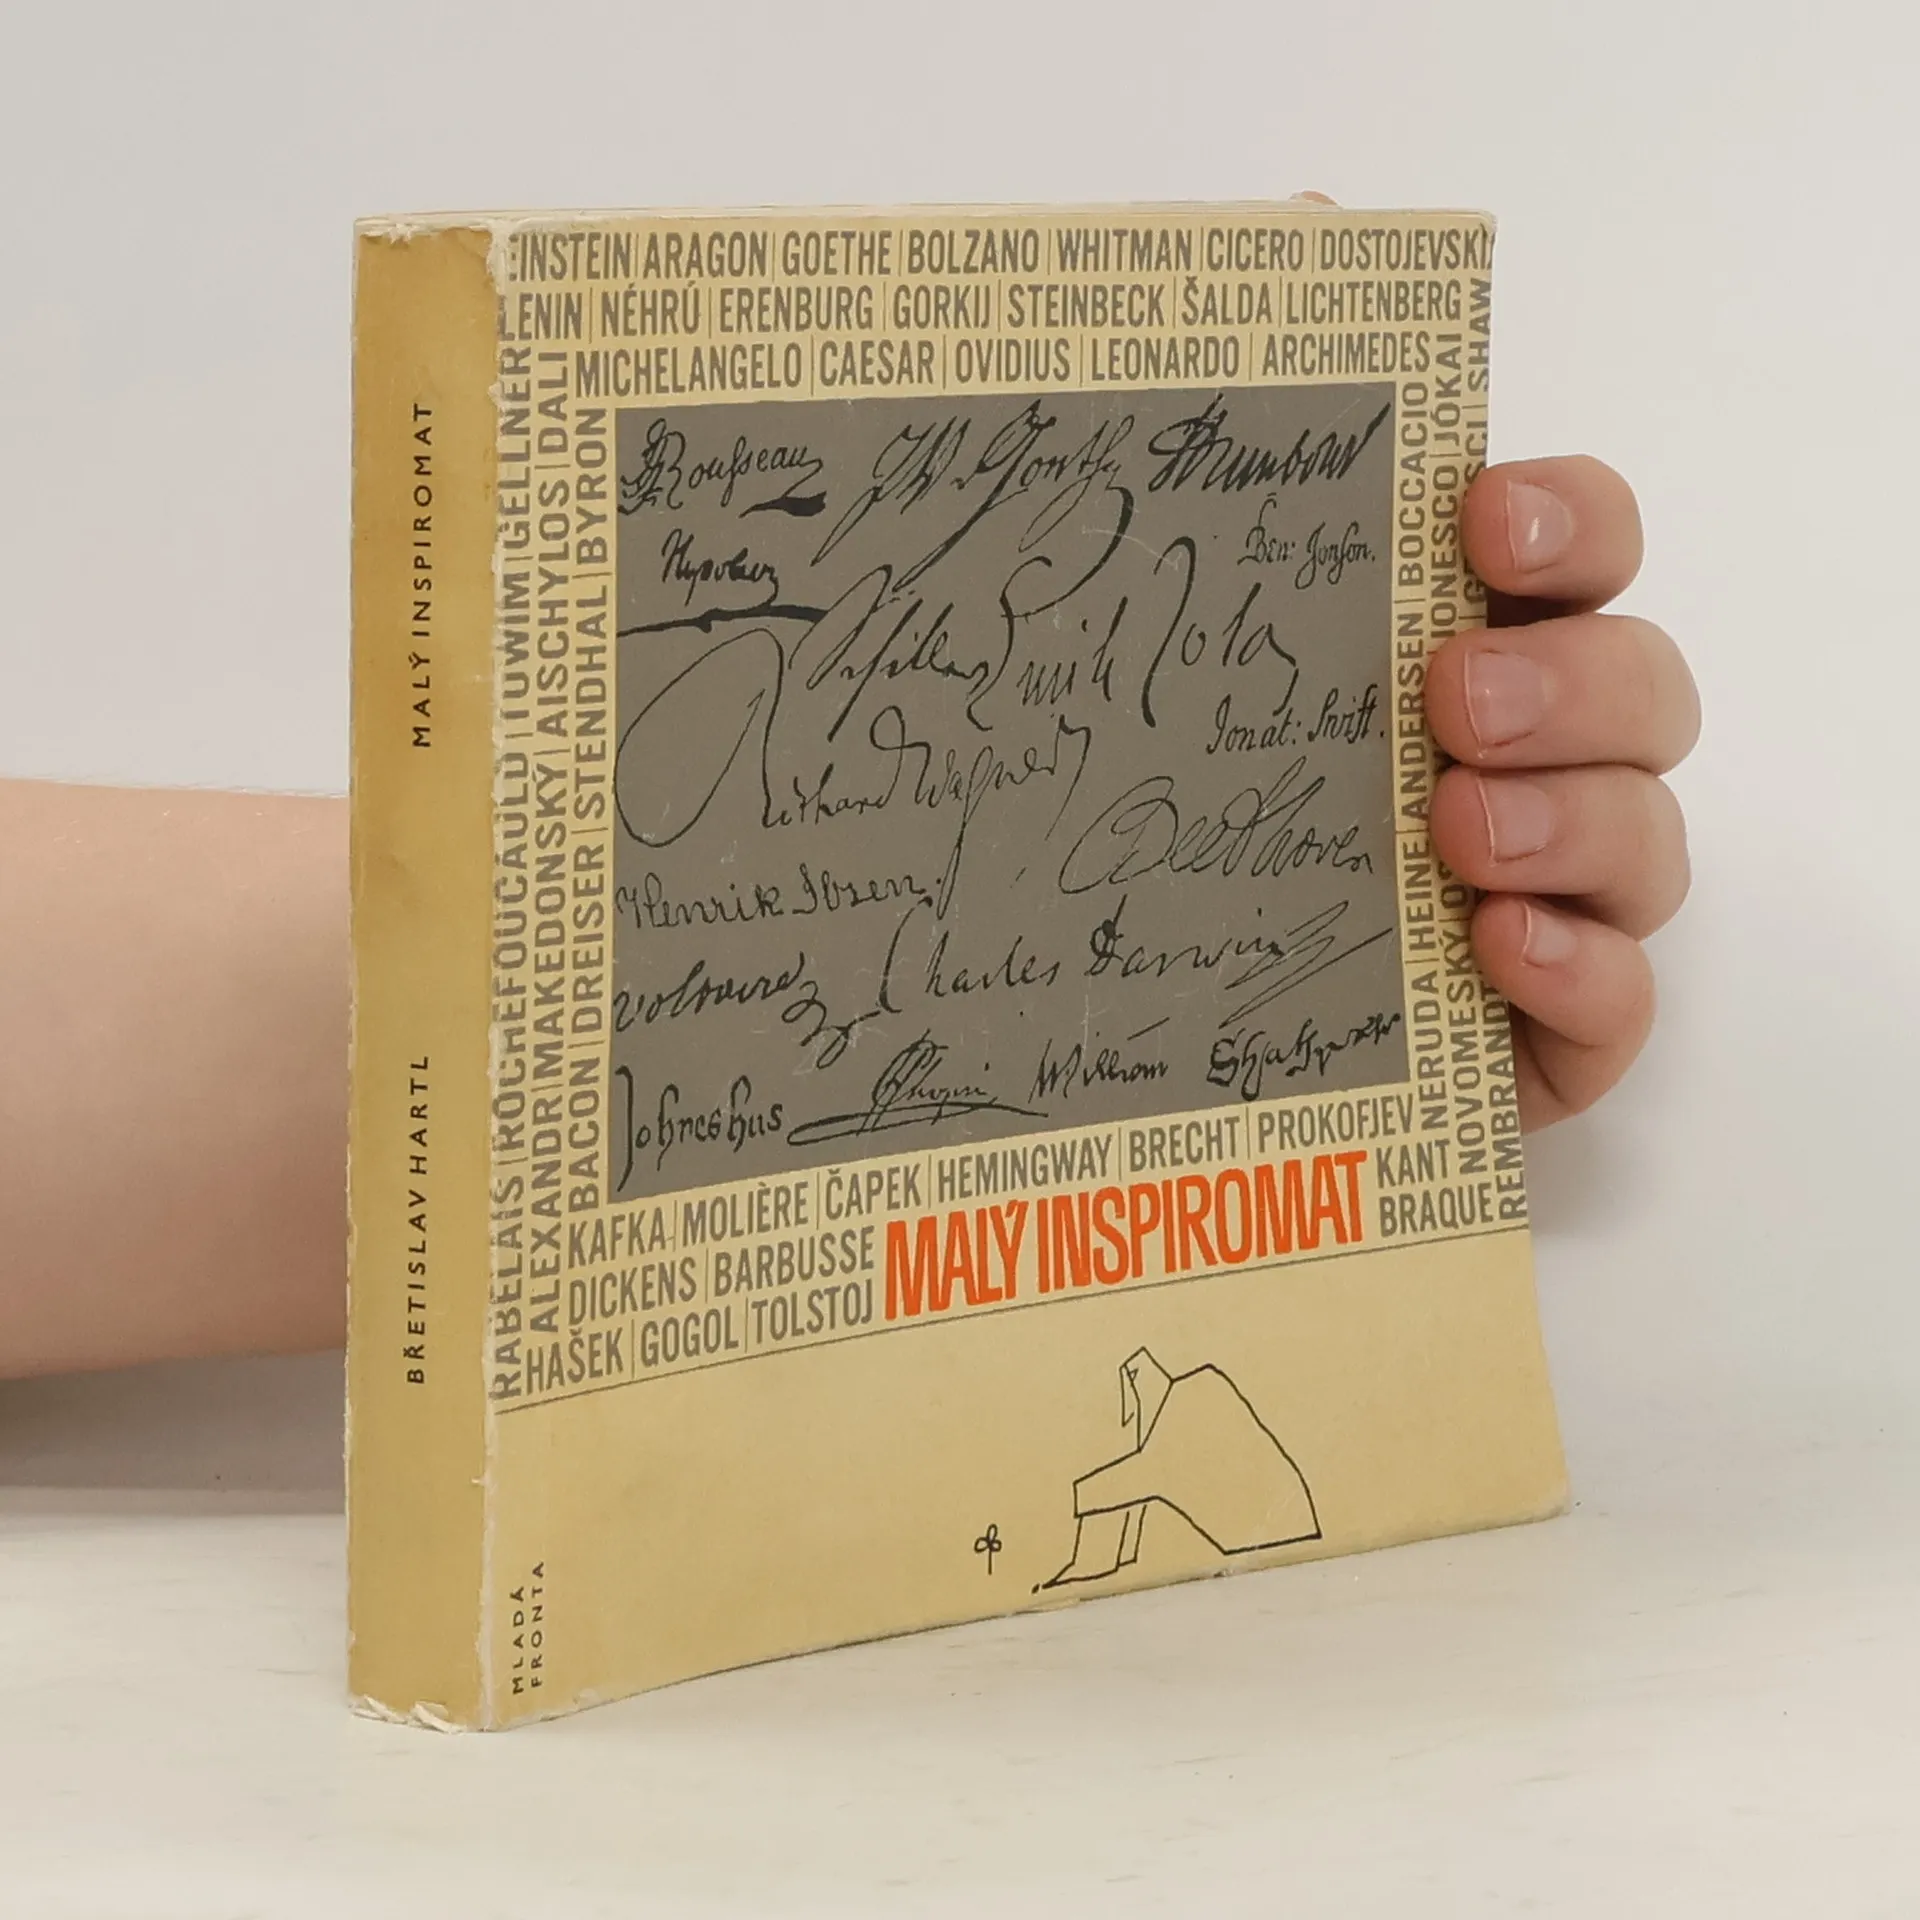 MALÝ INSPIROMAT
BŘETISLAV HARTL
EINSTEIN | ARAGON | GOETHE | BOLZANO | WHITMAN | CICERO | DOSTOJEVSKIJ
LENIN | NÉHRÚ | ERENBURG | GORKIJ | STEINBECK | ŠALDA | LICHTENBERG
MICHELANGELO | CAESAR | OVIDIUS | LEONARDO | ARCHIMEDES
RABELAIS | ROCHEFOUCAULD | TUWIM | GELLNER
ALEXANDR MAKEDONSKÝ | AISCHYLOS | DALI
BACON | DREISER | STENDHAL | BYRON
NERUDA | HEINE | ANDERSEN | BOCCACIO
NOVOMESKÝ IONESCO | JÓKAI
REMBRANDT SHAW
JJRousseau
JW Goethe
Ben: Jonson.
Schiller
Emile Zola
Jonat: Swift.
Richard Wagner
Beethoven
Henrik Ibsen.
Charles Darwin
voltaire
Johnes hus
Chopin
William Shakspeare
KAFKA | MOLIÈRE | ČAPEK | HEMINGWAY | BRECHT | PROKOFJEV
DICKENS | BARBUSSE
HAŠEK | GOGOL | TOLSTOJ
MALÝ INSPIROMAT
KANT
BRAQUE
MLADÁ
FRONTA